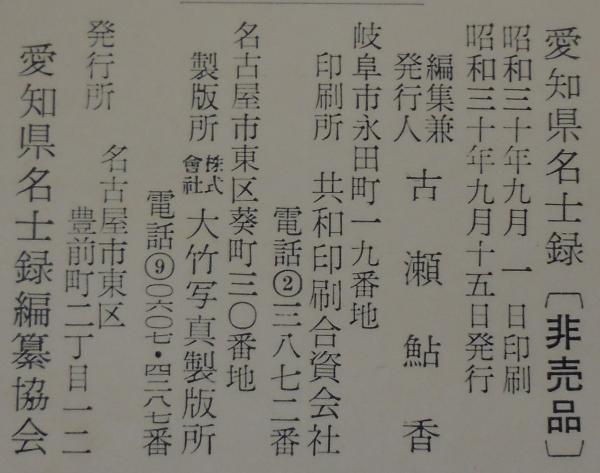 愛知県名士録〔非売品〕
昭和三十年九月一日印刷
昭和三十年九月十五日発行
編集兼
発行人 古瀬鮎香
岐阜市永田町一九番地
印刷所 共和印刷合資会社
電話②三八七二番
名古屋市東区葵町三〇番地
製版所 株式會社 大竹写真製版所
電話⑨〇六〇七・四三八七番
発行所 名古屋市東区
豊前町二丁目一二
愛知県名士録編纂協会